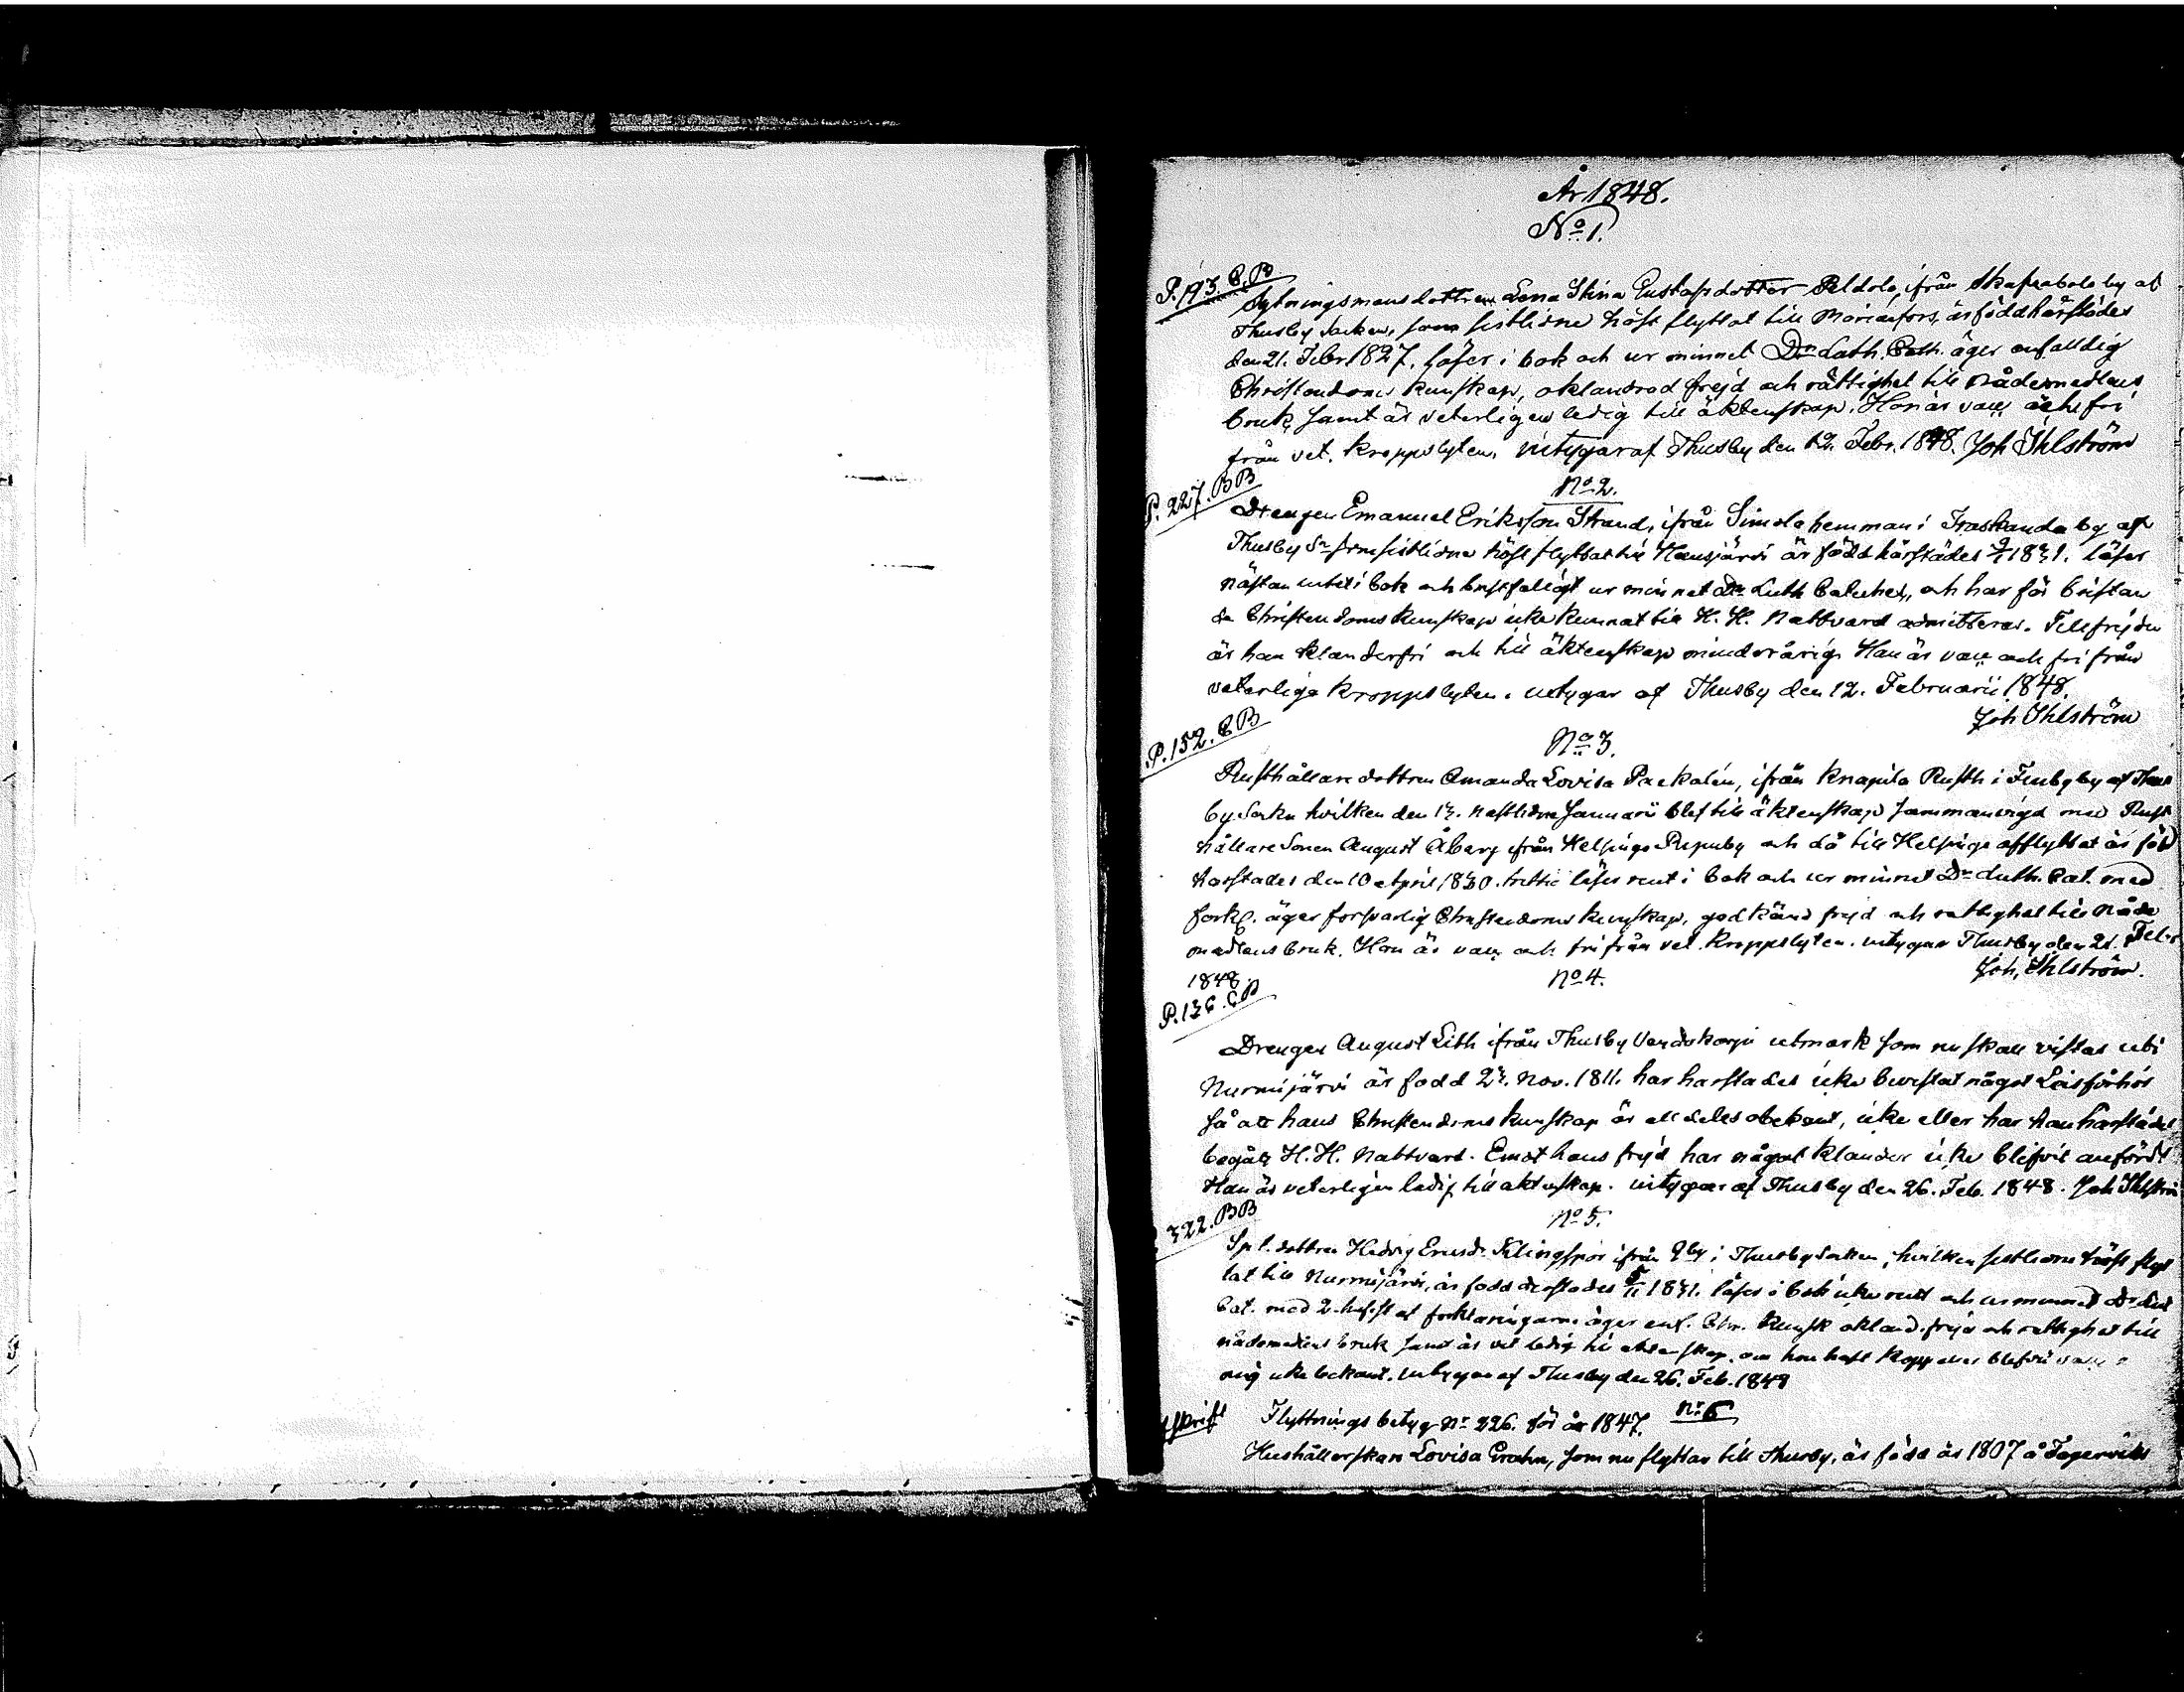 År 1848.
No 1.
P. 193. B.B
Sytningsmansdottren Lena Stina Gustafsdotter Peldolo, ifrån Skafvabole by af
Thusby Socken, som sistlidne höst flyttat till Mariefors, är född härstädes
den 21. Febr 1827, läser i bok och ur minnet Drn Luth. Cath. äger enfaldig
Christendoms kunskap, oklandrad frejd och rättighet till Nådemedlens
bruk, samt är veterligen ledig till äktenskap. Hon är vacc. och fri
från vet. kroppslyten, intygar af Thusby den 12. Febr. 1848. Joh Ihlström
P. 227. BB
No 2.
Drengen Emanuel Eriksson Strand, ifrån Simola hemman i Träskända by af
Thusby Sn som sistlidne höst flyttat till Hausjärvi är född härstädes 1831. läser
nästan intet i bok och bristfäligt ur minnet Dr. Luth Cateches, och har för bristan
de Christendoms kunskap icke kunnat till H. H. Nattvard admitteras. Till frejden
är han klanderfri och till äktenskap minderårig. Han är vacc och fri från
veterliga kroppslyten. intygar af Thusby den 12. Februarii 1848.
Joh Ihlström
P. 152. BB
No 3.
Rusthållare dottren Amanda Lovisa Packalén, ifrån Knapila Rusth i Finbyby af Thus
by Sockn hvilken den 13. nästlidne Januarii blef till äktenskap sammanvigd med Rust
hållare Sonen August Åberg ifrån Helsinge Sn och då till Helsinge afflyttat är föd
härstädes den 10 April 1830. trettio läser rent i bok och ur minnet Drn Luth. Cat. med
förkl. äger försvarlig Christendoms kunskap, godkänd frejd och rättighet till Nåde
medlens bruk. Hon är vacc och fri från vet. kroppslyten. intygar Thusby den 21. Febr
1848.
Joh. Ihlström.
P. 136. BB
No 4.
Drengen August Lith ifrån Thusby utmark som nu skall vistas uti
Nurmijärvi är född 23. Nov. 1811. har härstädes icke bevistat något Läsförhör
så att hans Christendoms kunskap är alldeles obekant, icke eller har han härstädes
begått H. H. Nattvard. Emot hans frejd har något klander icke blifvit anfördt
Han är veterligen ledig till äktenskap. intygar af Thusby den 26. Feb. 1848. Joh Ihlström
322. BB
No 5.
Sp l. dottren Hedvig Ericsdr Klingspor ifrån by i Thusby Socken, hvilken sistlidne höst flyt
tat till Nurmijärvi, är född derstädes 1831. läser i bok icke rent och ur minnet Dr Lut
Cat. med 2. hufst af förklaringarne äger enf. Chr. kunsk okland. frejd och rättighet till
nådemedlens bruk samt är vet ledig till äktenskap. om hon haft koppor eller blifvit vacc
mig icke bekant. intygar af Thusby den 26. Feb. 1848
Flyttnings betyg No 226. för år 1847.
No 6
Hushållerskan Lovisa Grahn, som nu flyttar till Thusby, är född år 1807 å Fagerviks